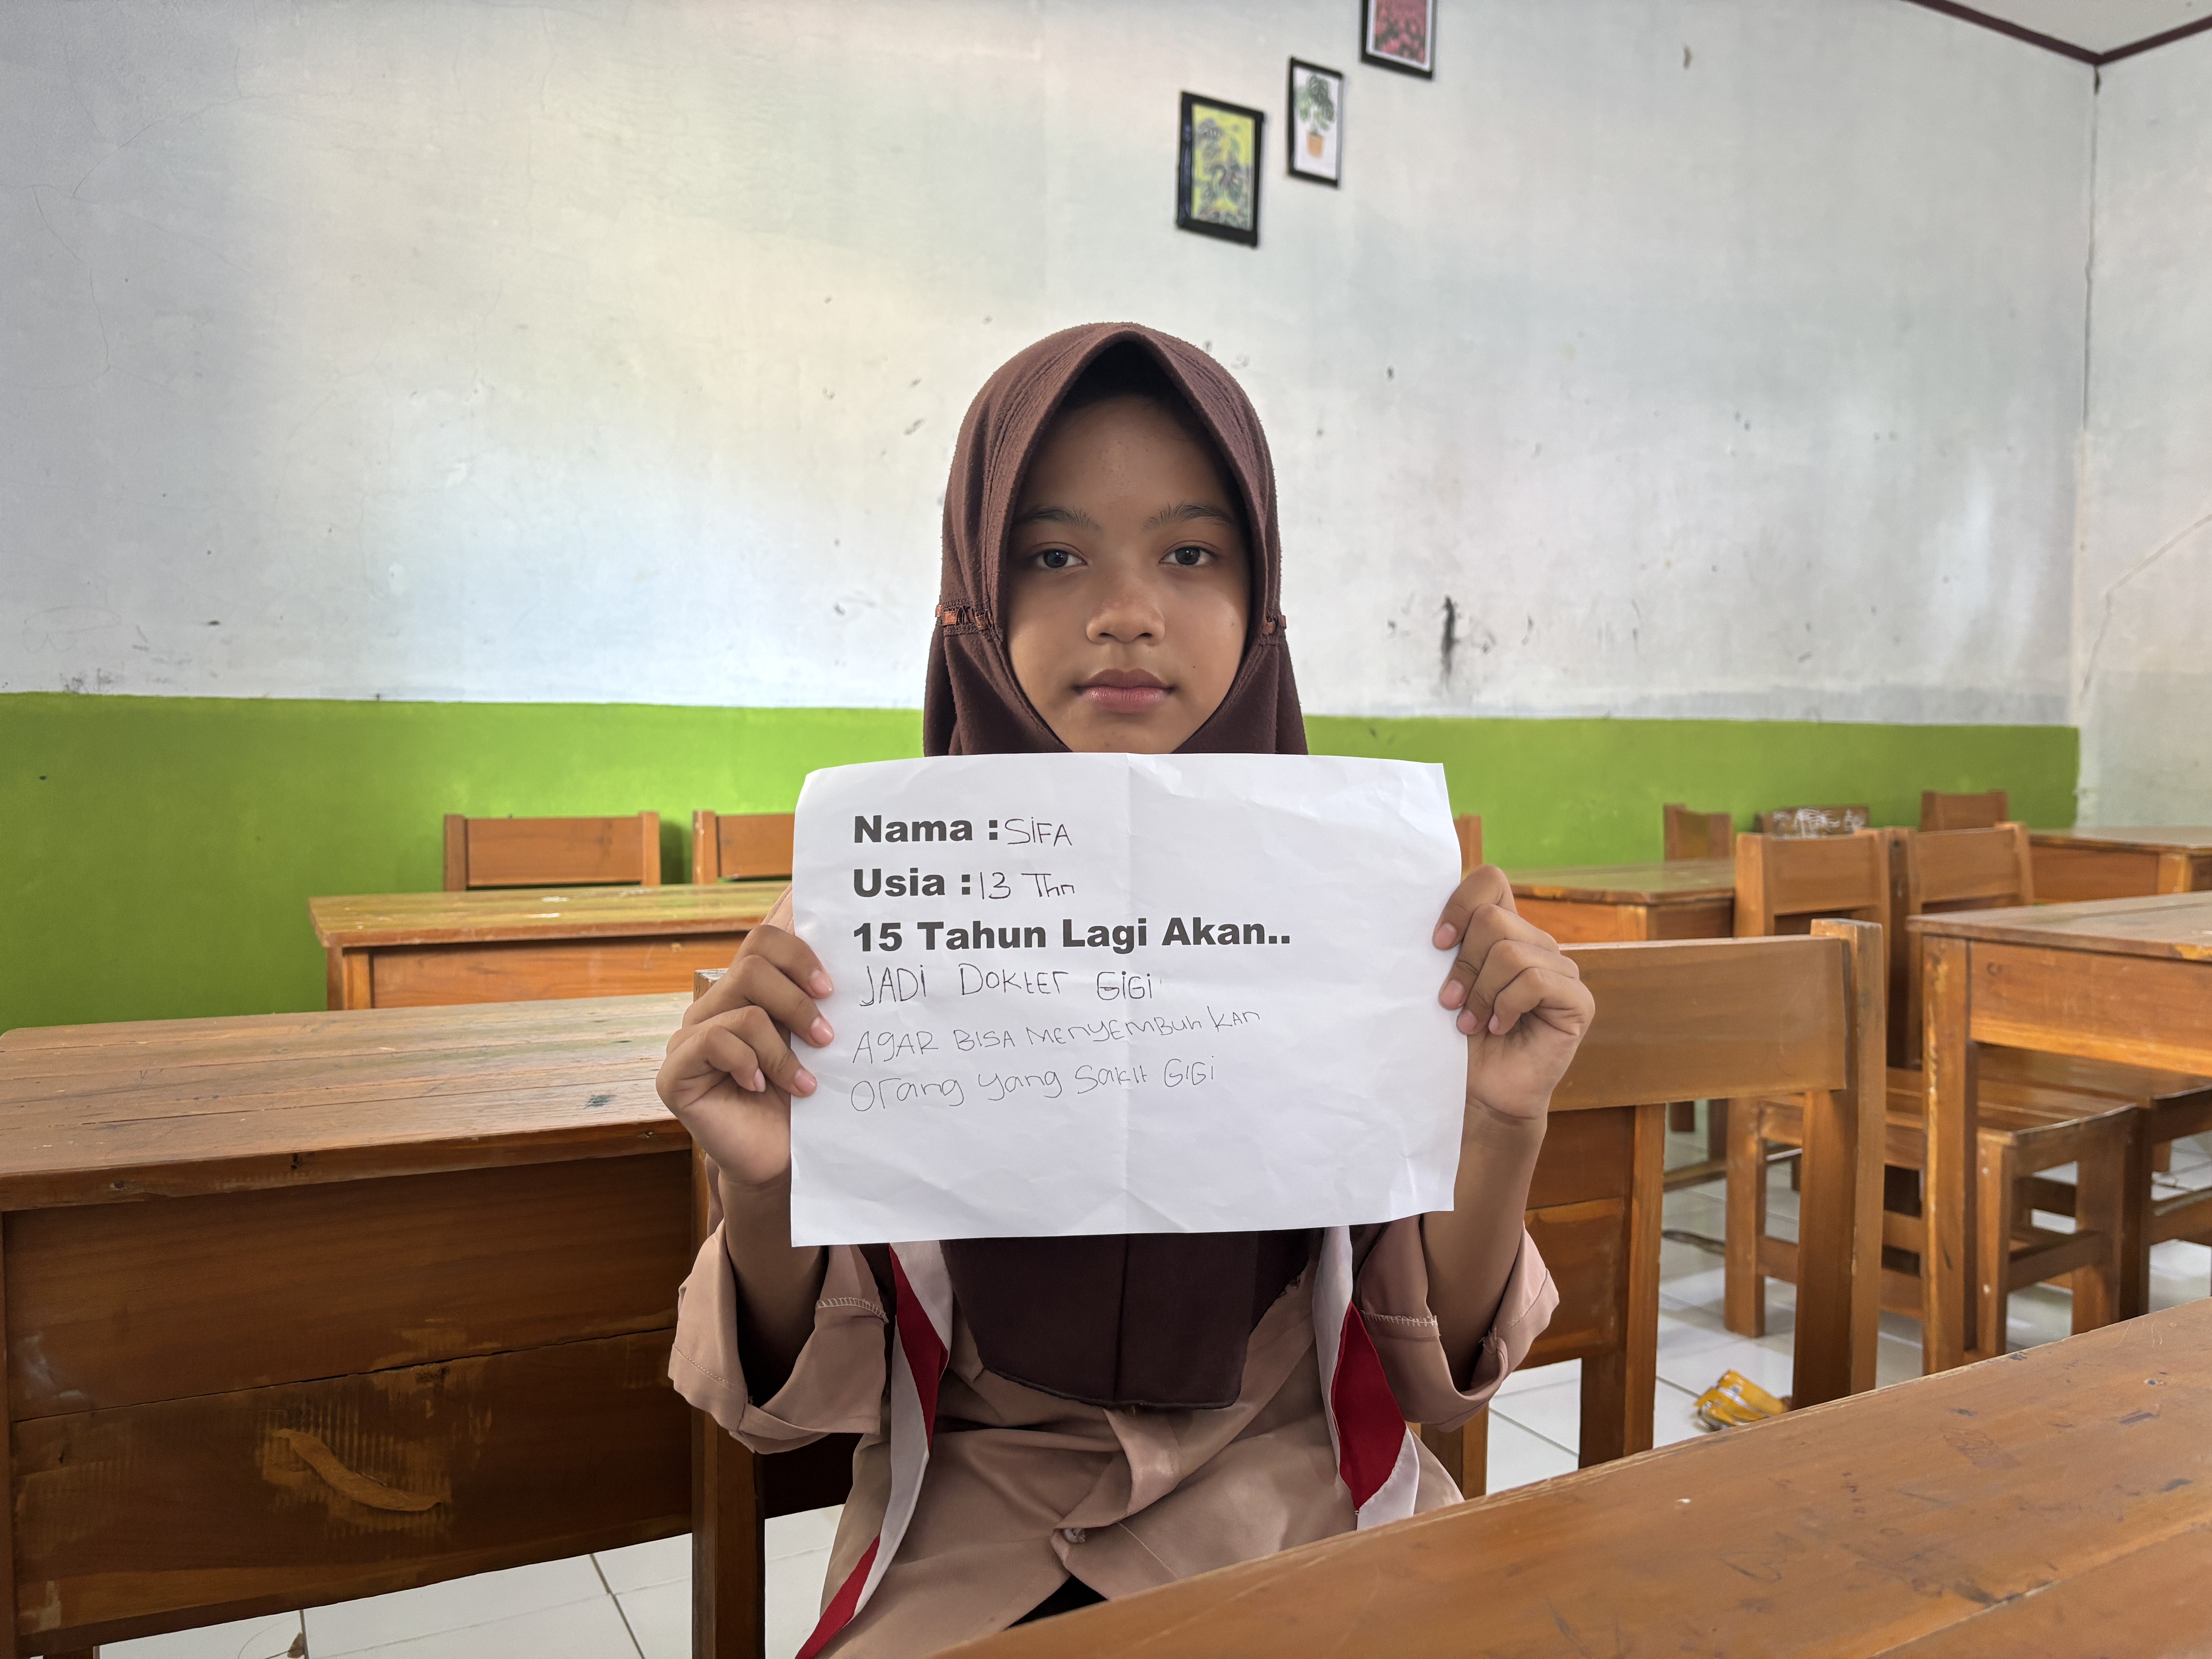 Nama : SiFA
Usia : 13 Thn
15 Tahun Lagi Akan..
JADi DOKtEr GiGi
AgAR BISA MEnyEMBUhKAn
Orang yang Sakit GiGi